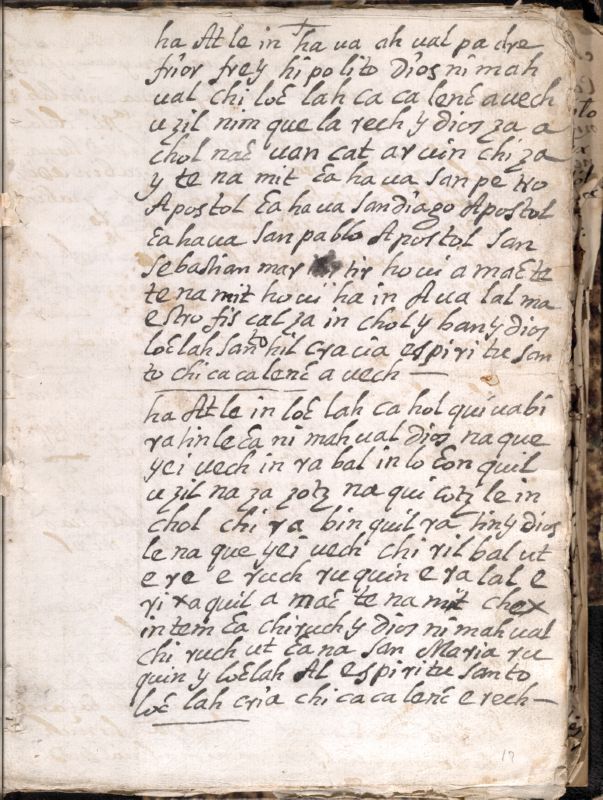 ha At le in ha ua ah ual pa dre
frior frey hi po li to Dios ni mah
ual chi loꜫ lah ca ca lenꜫ a uech
u zil nim que la rech y dios za a
chol naꜫ uan cat ar uin chi za
y te na mit ꜫa ha ua San pe tro
Apostol ꜫa ha ua Sandiago Apostol
ꜫa ha ua San pablo Apostol San
Sebastian mar tir ho ui a maꜫ te
te na mit ho ui ha in A ua lal ma
estro fis cal za in chol y ban y dios
loꜫ lah santo hil cracia espiritu San
to chi ca ca lenꜫ a uech —
ha At le in loꜫ lah ca hol qui ua bi
ra tin le ꜫa ni mah ual Dios na que
yei uech in ra bal in lo ꜫon quil
u zil na za zotz na qui cotz le in
chol chi ra bin quil ra tin y dios
le na que yei uech chi ril bal ut
e re e ruch ru quin e ra lal e
ri xa quil a maꜫ te na mit chox
in tem ꜫa chi ruch y Dios ni mah ual
chi ruch ut ꜫa na San Maria ru
quin y loꜫ lah Al espiritu Santo
loꜫ lah cria chi ca ca lenꜫ e rech —
17